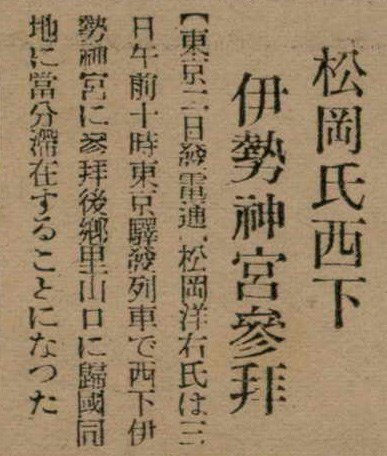 松岡氏西下
伊勢神宮參拜
【東京二日發電通】松岡洋右氏は三
日午前十時東京驛發列車で西下伊
勢神宮に參拜後鄕里山口に歸國同
地に當分滯在することになつた